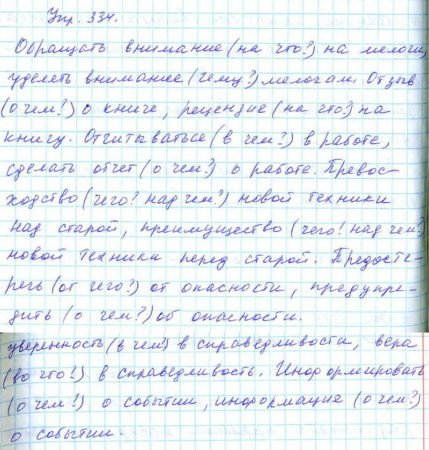 Упр. 334.
Обращать внимание (на что?) на мелочи,
уделять внимание (чему?) мелочам. Отзыв
(о чем?) о книге, рецензие (на что?) на
книгу. Отчитываться (в чем?) в работе,
сделать отчет (о чем?) о работе. Превос-
ходство (чего? над чем?) новой техники
над старой, преимущество (чего? над чем?)
новой техники перед старой. Предосте-
речь (от чего?) от опасности, предупре-
дить (о чем?) об опасности.
уверенность (в чем) в справедливости, вера
(во что?) в справедливость. Информировать
(о чем?) о событии, информация (о чем?)
о событии.